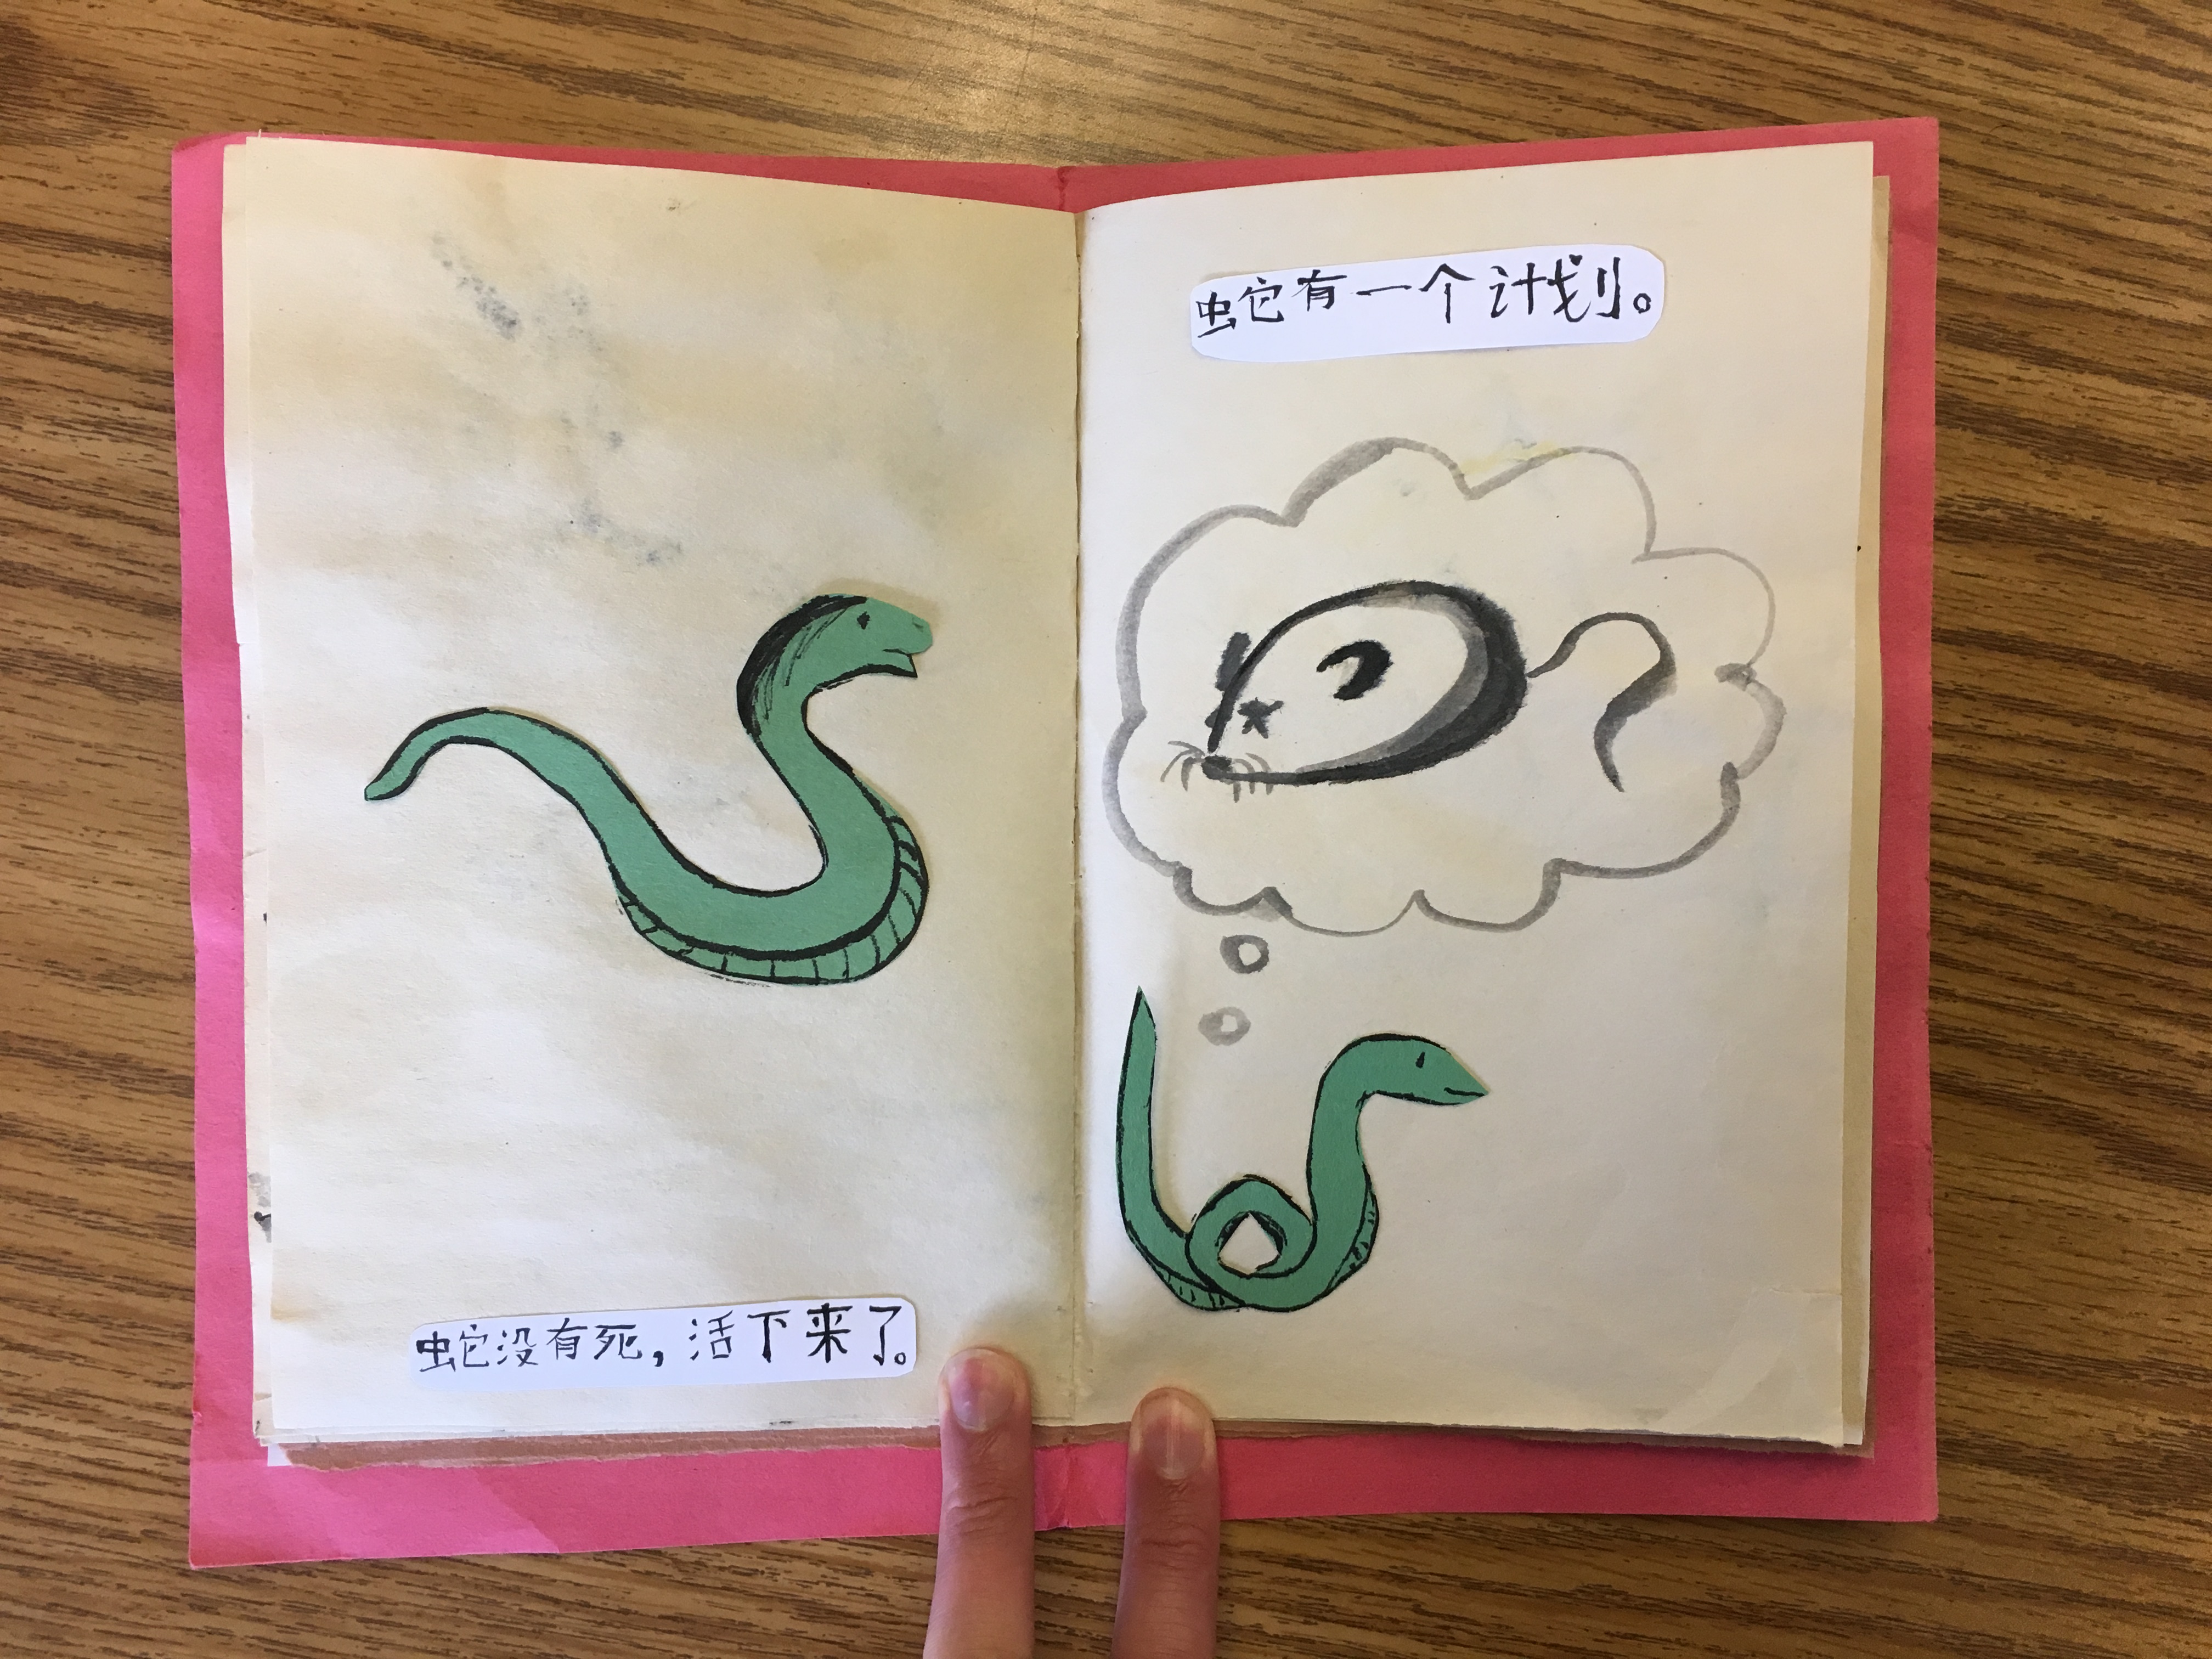 蛇没有死，活下来了。
蛇有一个计划。